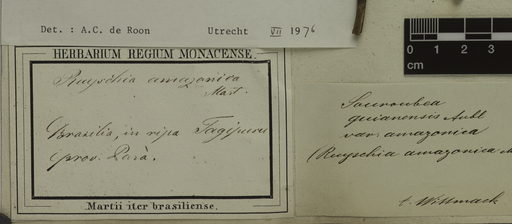 Det. : A.C. de Roon Utrecht VII 1976
HERBARIUM REGIUM MONACENSE.
Ruyschia amazonica
Mart.
Brasilia, in ripa Tagipuru
prov. Parà.
Martii iter brasiliense.
cm
1 2 3
Souroubea
guianensis Aubl
var. amazonica
(Ruyschia amazonica M
t. Wittmack